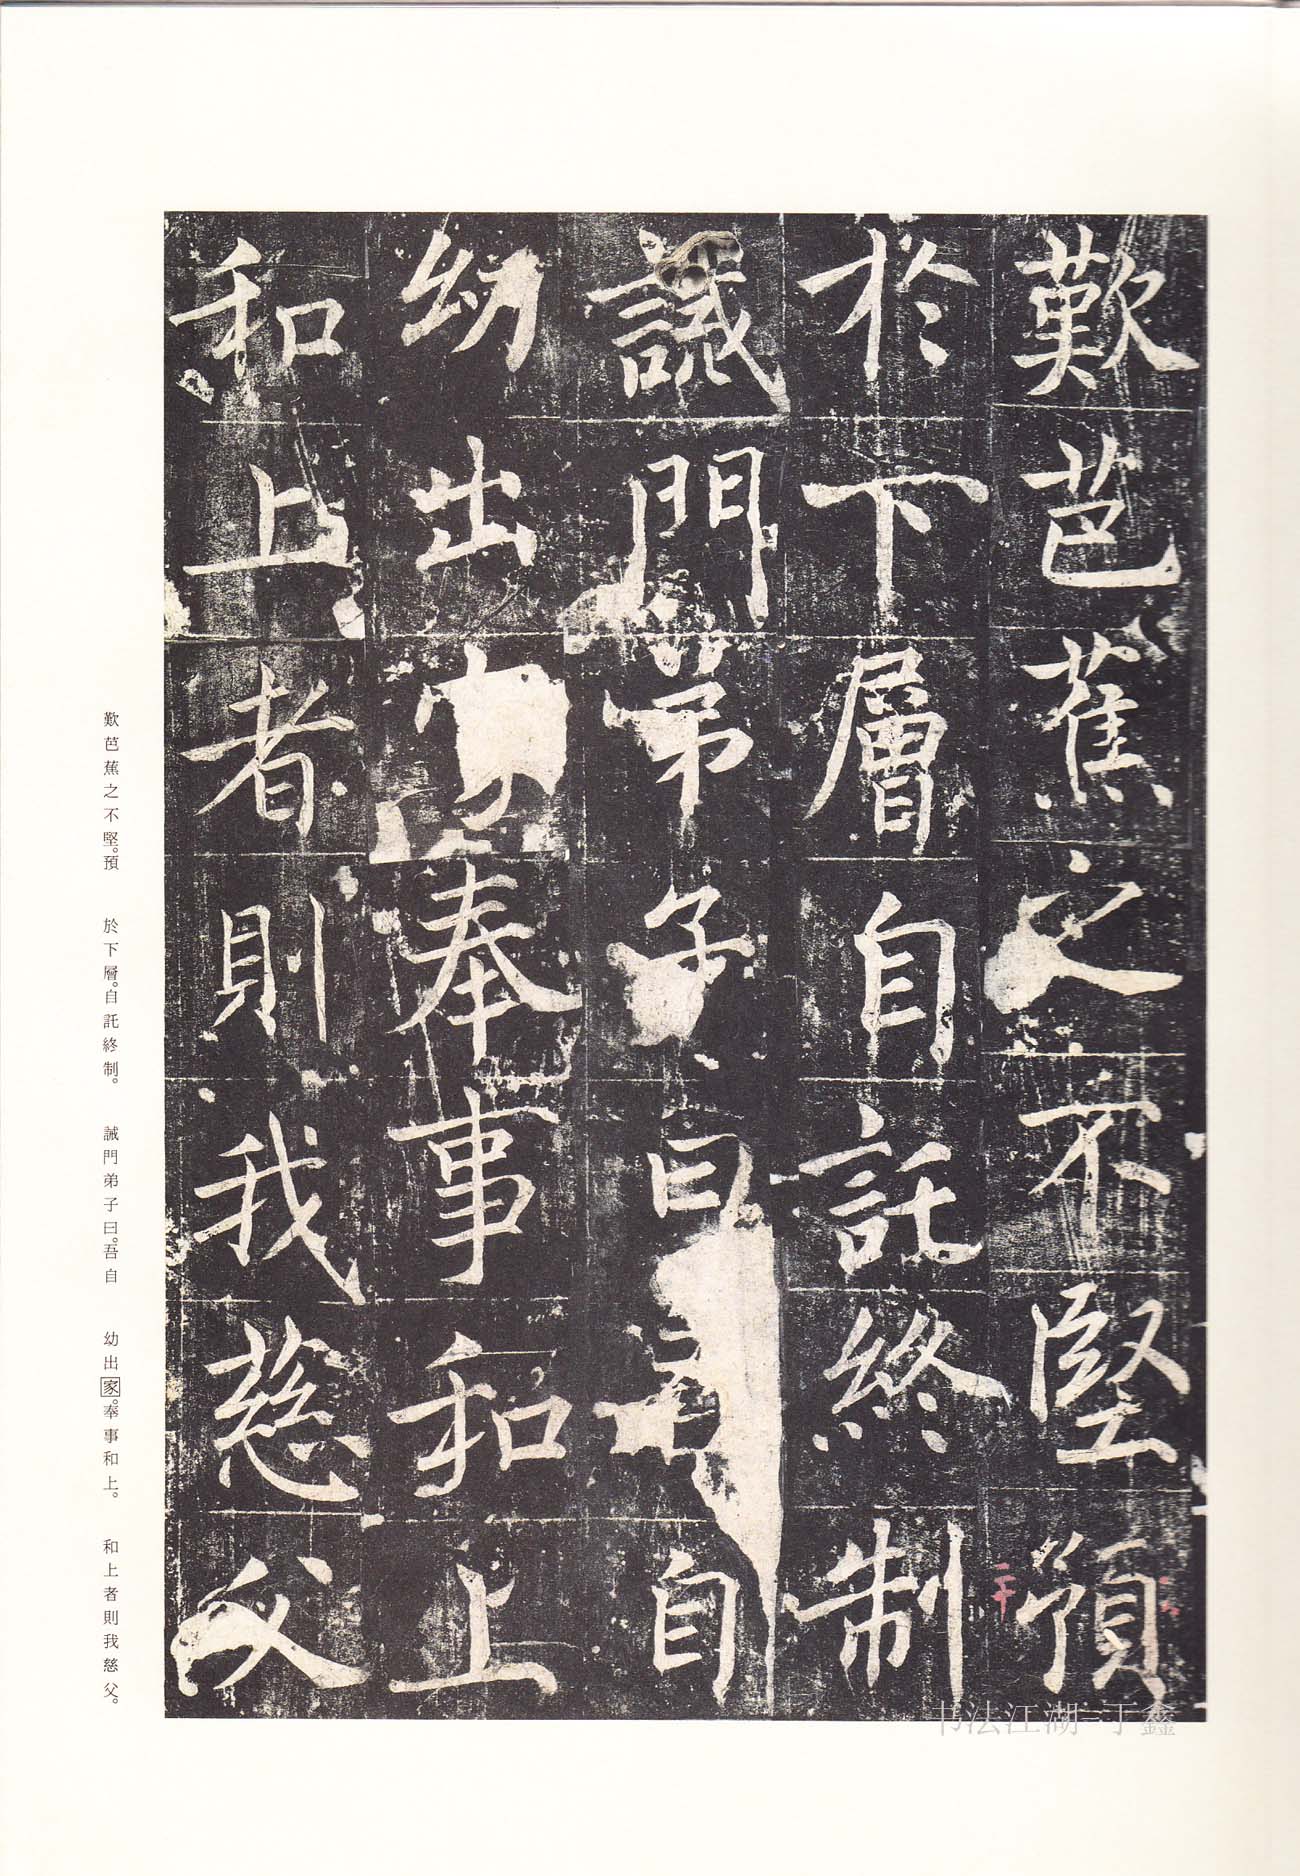 歎芭蕉之不堅預
於下層自託終制
誡門弟子曰吾自
幼出家奉事和上
和上者則我慈父
歎芭蕉之不堅。預
於下層。自託終制。
誡門弟子曰。吾自
幼出家。奉事和上。
和上者則我慈父。
书法江湖=丁鑫